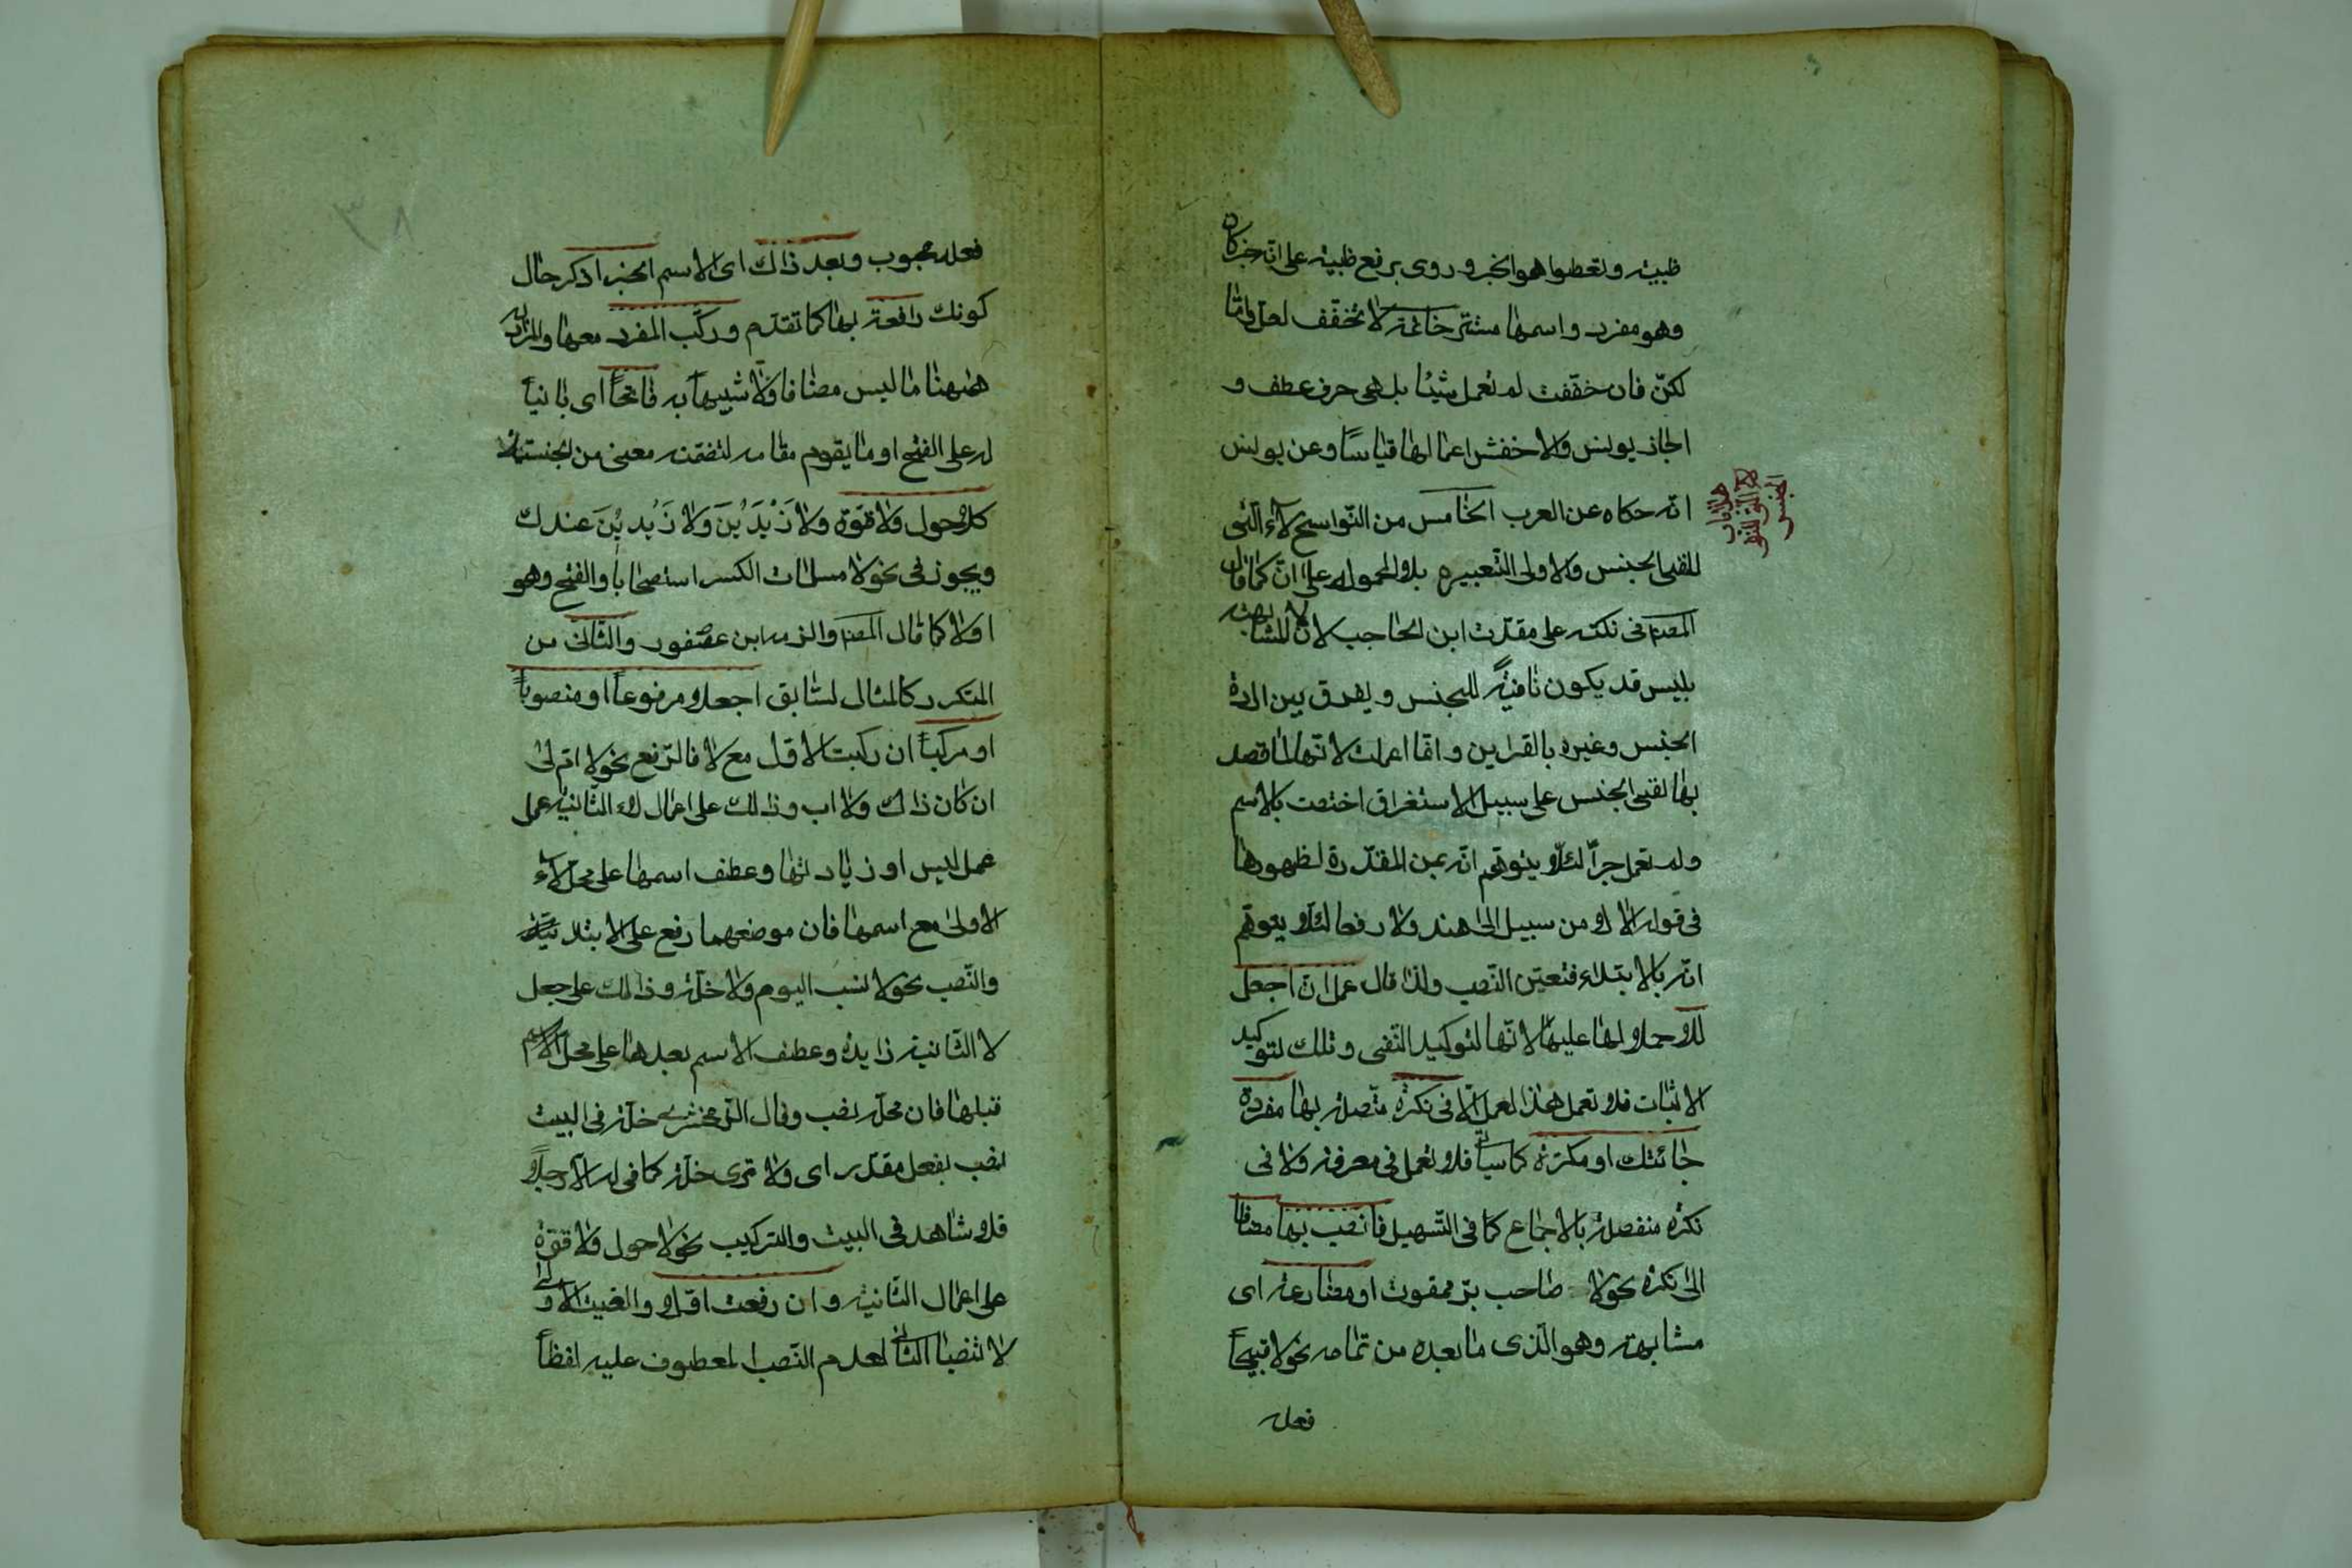 ظبية وتعطوا هو الخبر وروى برفع ظبية على انّه خبر كان
وهو مفرد واسمها مستتر خاتمة لا تخفّف لعلّ وامّا
لكنّ فان خفّفت لم تعمل شيئا بل هي حرف عطف و
اجاز يونس والاخفش اعمالها قياسًا وعن يونس
انّه حكاه عن العرب الخامس من النّواسخ لاء الّتى
لنفى الجنس والاولى التّعبير بلا المحمولة على انّ كما قال
المصم في نكته على مقدّمة ابن الحاجب لانّ لا المشابهة
بليس قد يكون نافيةً للجنس ويفرق بين ارادة
الجنس وغيره بالقراين وانّما اعملت لانّها لما قصد
بها نفى الجنس على سبيل الاستغراق اختصت بالاسم
ولم تعمل جراّ لئلّا يتوهّم انّه بمن المقدّرة لظهورها
في قوله الا لا من سبيل الى هند ولا رفعا لئلّا يتوهّم
انّه بالابتداء فتعيّن النّصب ولذا قال عمل انّ اجعل
للا حملا لها عليها لانّها لتوكيد النّفى وتلك لتوكيد
الاثبات فلا تعمل هذا العمل الّا فى نكرة متّصلة بها مفردة
جائتك او مكرّرة كما سيأتى فلا تعمل في معرفة ولا فى
نكرة منفصلة بالاجماع كما فى التّسهيل فانصب بها مضافا
الى نكرة نحو لا صاحب برّ ممقوت او مضارعه اى
مشابهه وهو الّذى ما بعده من تمامه نحو لا قبيحاً
فعله
هذا باب
لاء التى لنفى
الجنس
٣٨
فعله محبوب وبعد ذاك اى الاسم الخبر اذكر حال
كونك رافعه بها كما تقدّم وركّب المفرد معها والمراد به
ههنا ما ليس مضافا ولا شبيها به فاتحاً اى بانياً
له على الفتح او ما يقوم مقامه لتضمّنه معنى من الجنسيّة
كلا حول ولا قوّة ولا زَيْدَيْنَ ولا زَيْدِيْنَ عندك
ويجوز فى نحو لا مسلمات الكسر استصحاباً والفتح وهو
اولا كما قال المصم والزمه ابن عصفور والثّانى من
المتكرر كالمثال السّابق اجعلا مرفوعاً او منصوباً
او مركّباً ان ركّبت الاوّل مع لا فالرّفع نحو لا امّ لى
ان كان ذاك ولا اب وذلك على اعمال لاء الثّانية عمل
عمل ليس او زيادتها وعطف اسمها على محلّ لاء
الاولى مع اسمها فان موضعهما رفع على الابتدائيّة
والنّصب نحو لا نسب اليوم ولا خلّة وذلك على جعل
لا الثّانية زايدة وعطف الاسم بعدها على محلّ الاسم
قبلها فان محلّه نصب وقال الزّمخشرى خلّة فى البيت
نصب بفعل مقدّر اى ولا ترى خلّة كما فى له الّا رجلاً
فلا شاهد فى البيت والتركيب نحو لا حول ولا قوّة
على اعمال الثّانية وان رفعت اوّلا والغيت الاولى
لا تنصبا الثّانى لعدم النّصب المعطوف عليه لفظاً